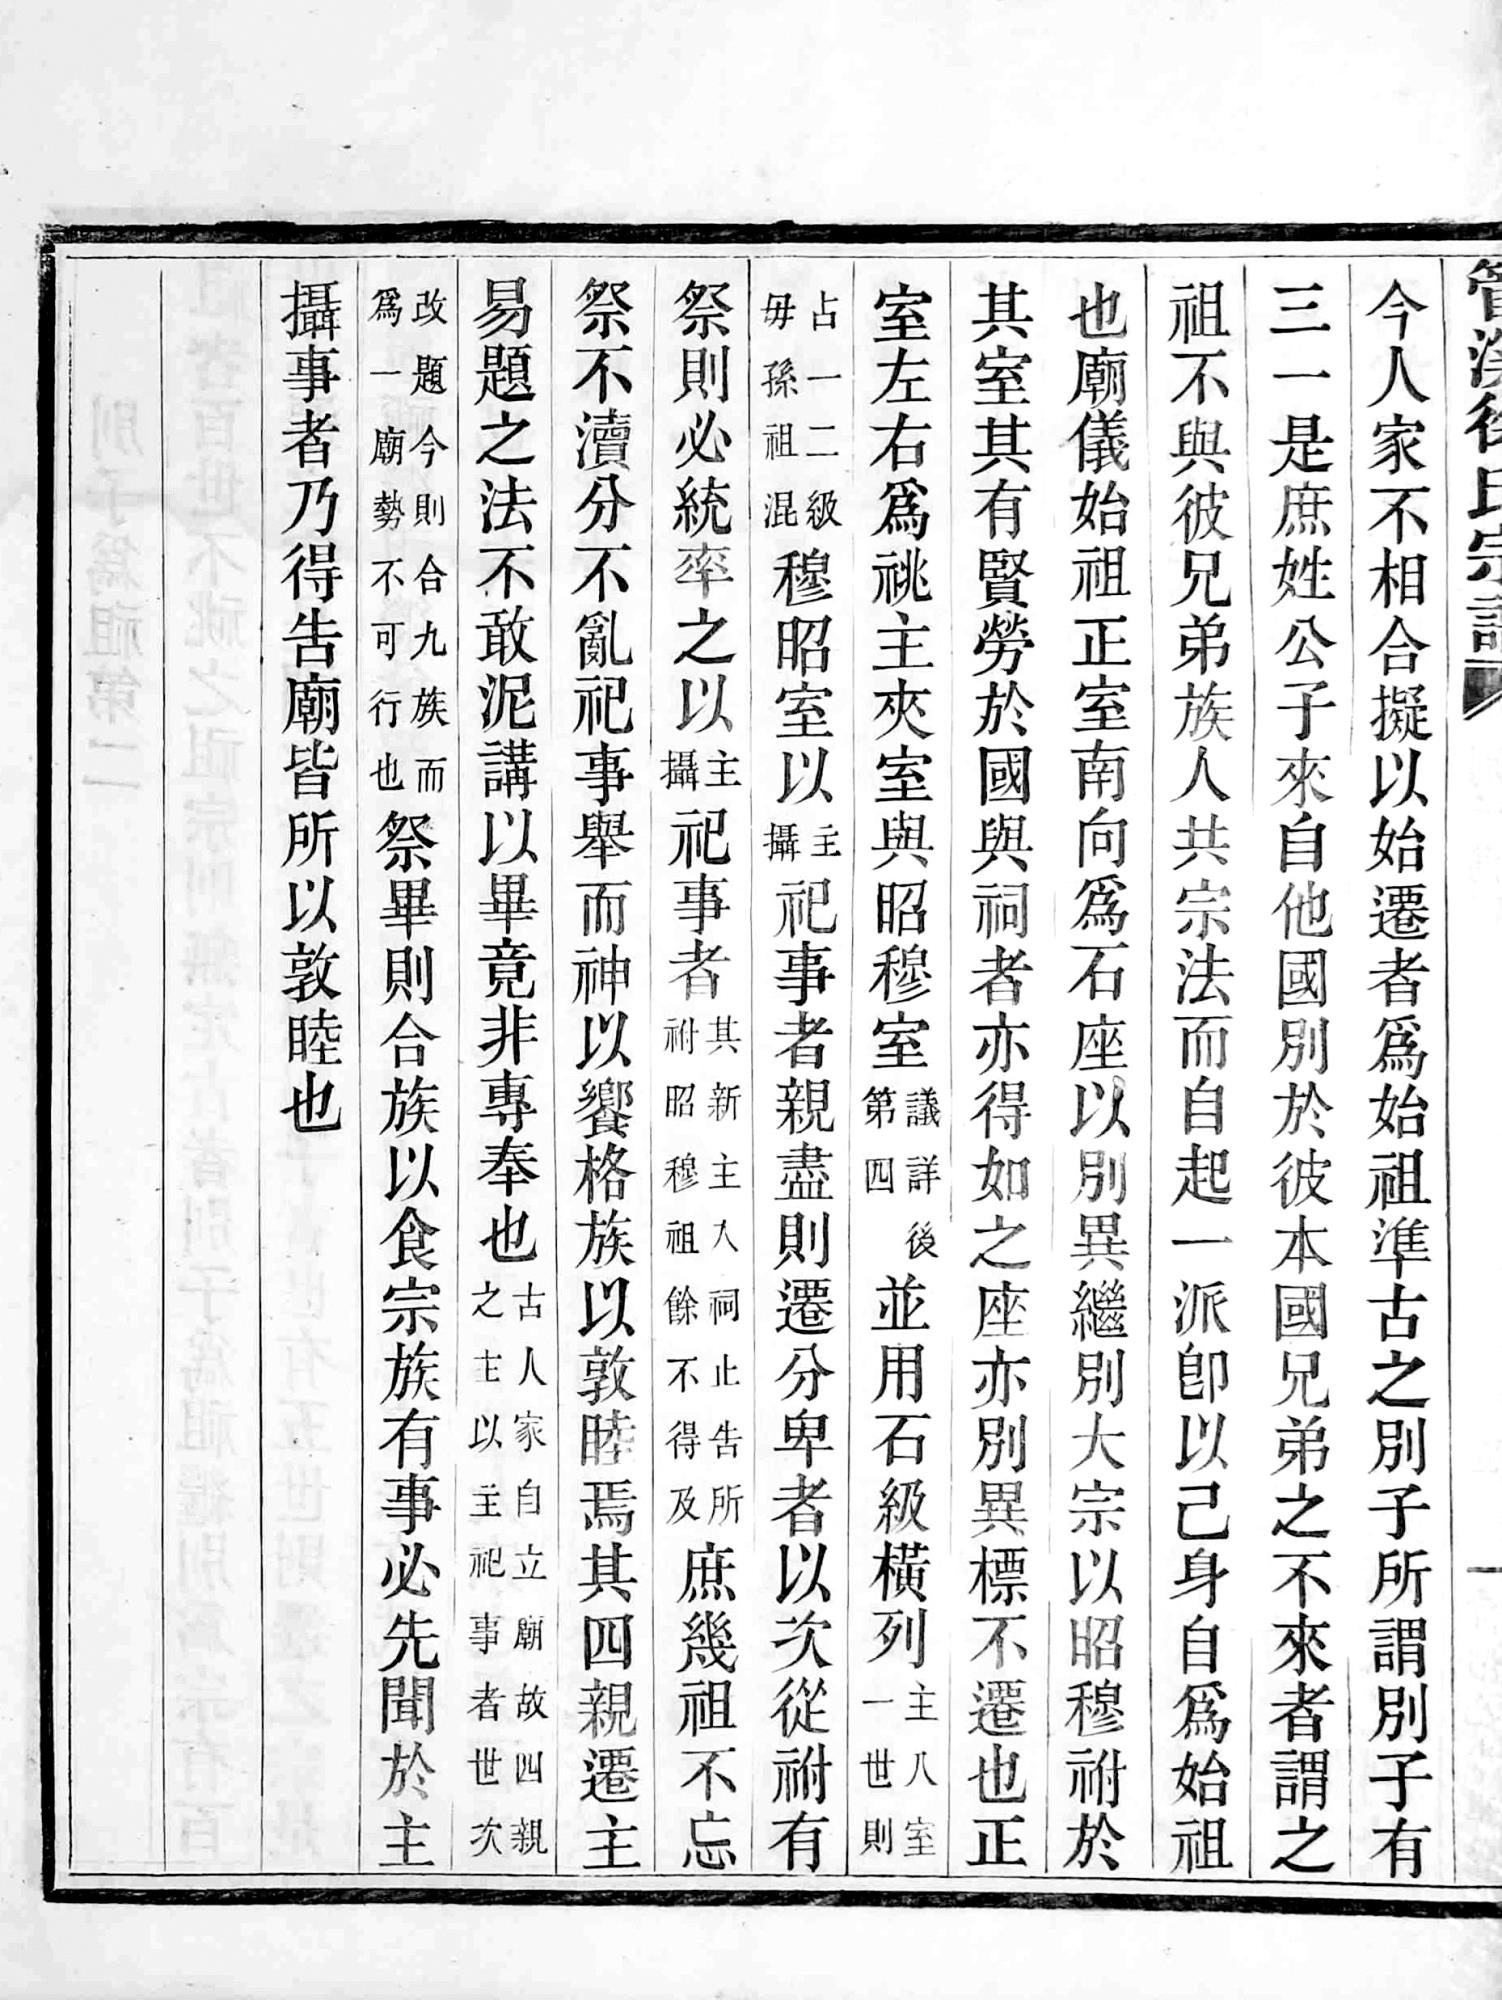 管溪徐氏宗譜
一
今人家不相合擬以始遷者爲始祖準古之別子所謂別子有
三一是庶姓公子來自他國別於彼本國兄弟之不來者謂之
祖不與彼兄弟族人共宗法而自起一派卽以己身自爲始祖
也廟儀始祖正室南向爲石座以別異繼別大宗以昭穆祔於
其室其有賢勞於國與祠者亦得如之座亦別異標不遷也正
室左右爲祧主夾室與昭穆室議詳後第四並用石級橫列主入室一世則
占一二級毋孫祖混穆昭室以主攝祀事者親盡則遷分卑者以次從祔有
祭則必統率之以主攝祀事者其新主入祠止告所祔昭穆祖餘不得及庶幾祖不忘
祭不瀆分不亂祀事舉而神以饗格族以敦睦焉其四親遷主
易題之法不敢泥講以畢竟非專奉也古人家自立廟故四親之主以主祀事者世次
改題今則合九族而爲一廟勢不可行也祭畢則合族以食宗族有事必先聞於主
攝事者乃得告廟皆所以敦睦也